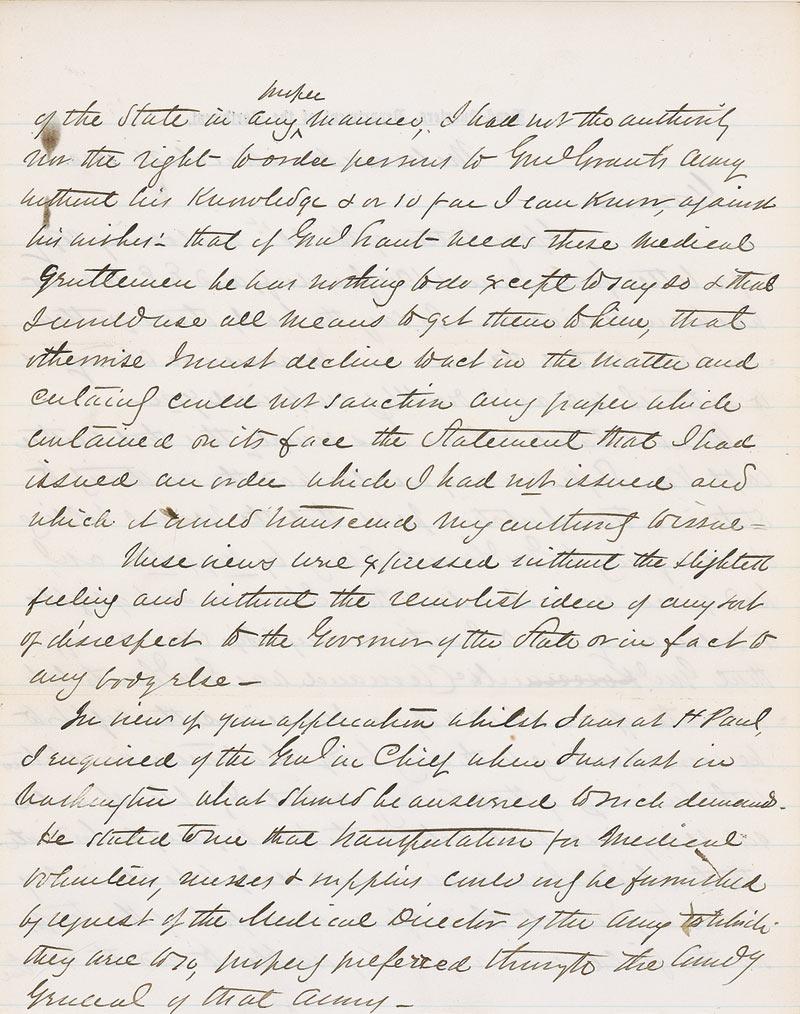 proper
of the State in any manner, I had not the authority
nor the right to order persons to Genl Grants Army
without his Knowledge & or so far I can Know, against
his wishes:- that if Genl Grant needs these medical
Gentlemen he has nothing to do except to say so & that
I would use all means to get them to him, that
otherwise I must decline to act in the matter and
certainly could not sanction any paper which
contained on its face the Statement that I had
issued an order which I had not issued and
which it would transcend my authority to issue =
These views were expressed without the slightest
feeling and without the remotest idea of any sort
of disrespect to the Governor of the State or in fact to
any body else —
In view of your application whilst I was at St Paul,
I enquired of the Genl in Chief when I was last in
Washington what should be answered to such demands.
He stated to me that transportation for Medical
Volunteers, nurses & supplies could only be furnished
by request of the Medical Director of the Army to which
they were to go, properly preferred through the
General of that Army —